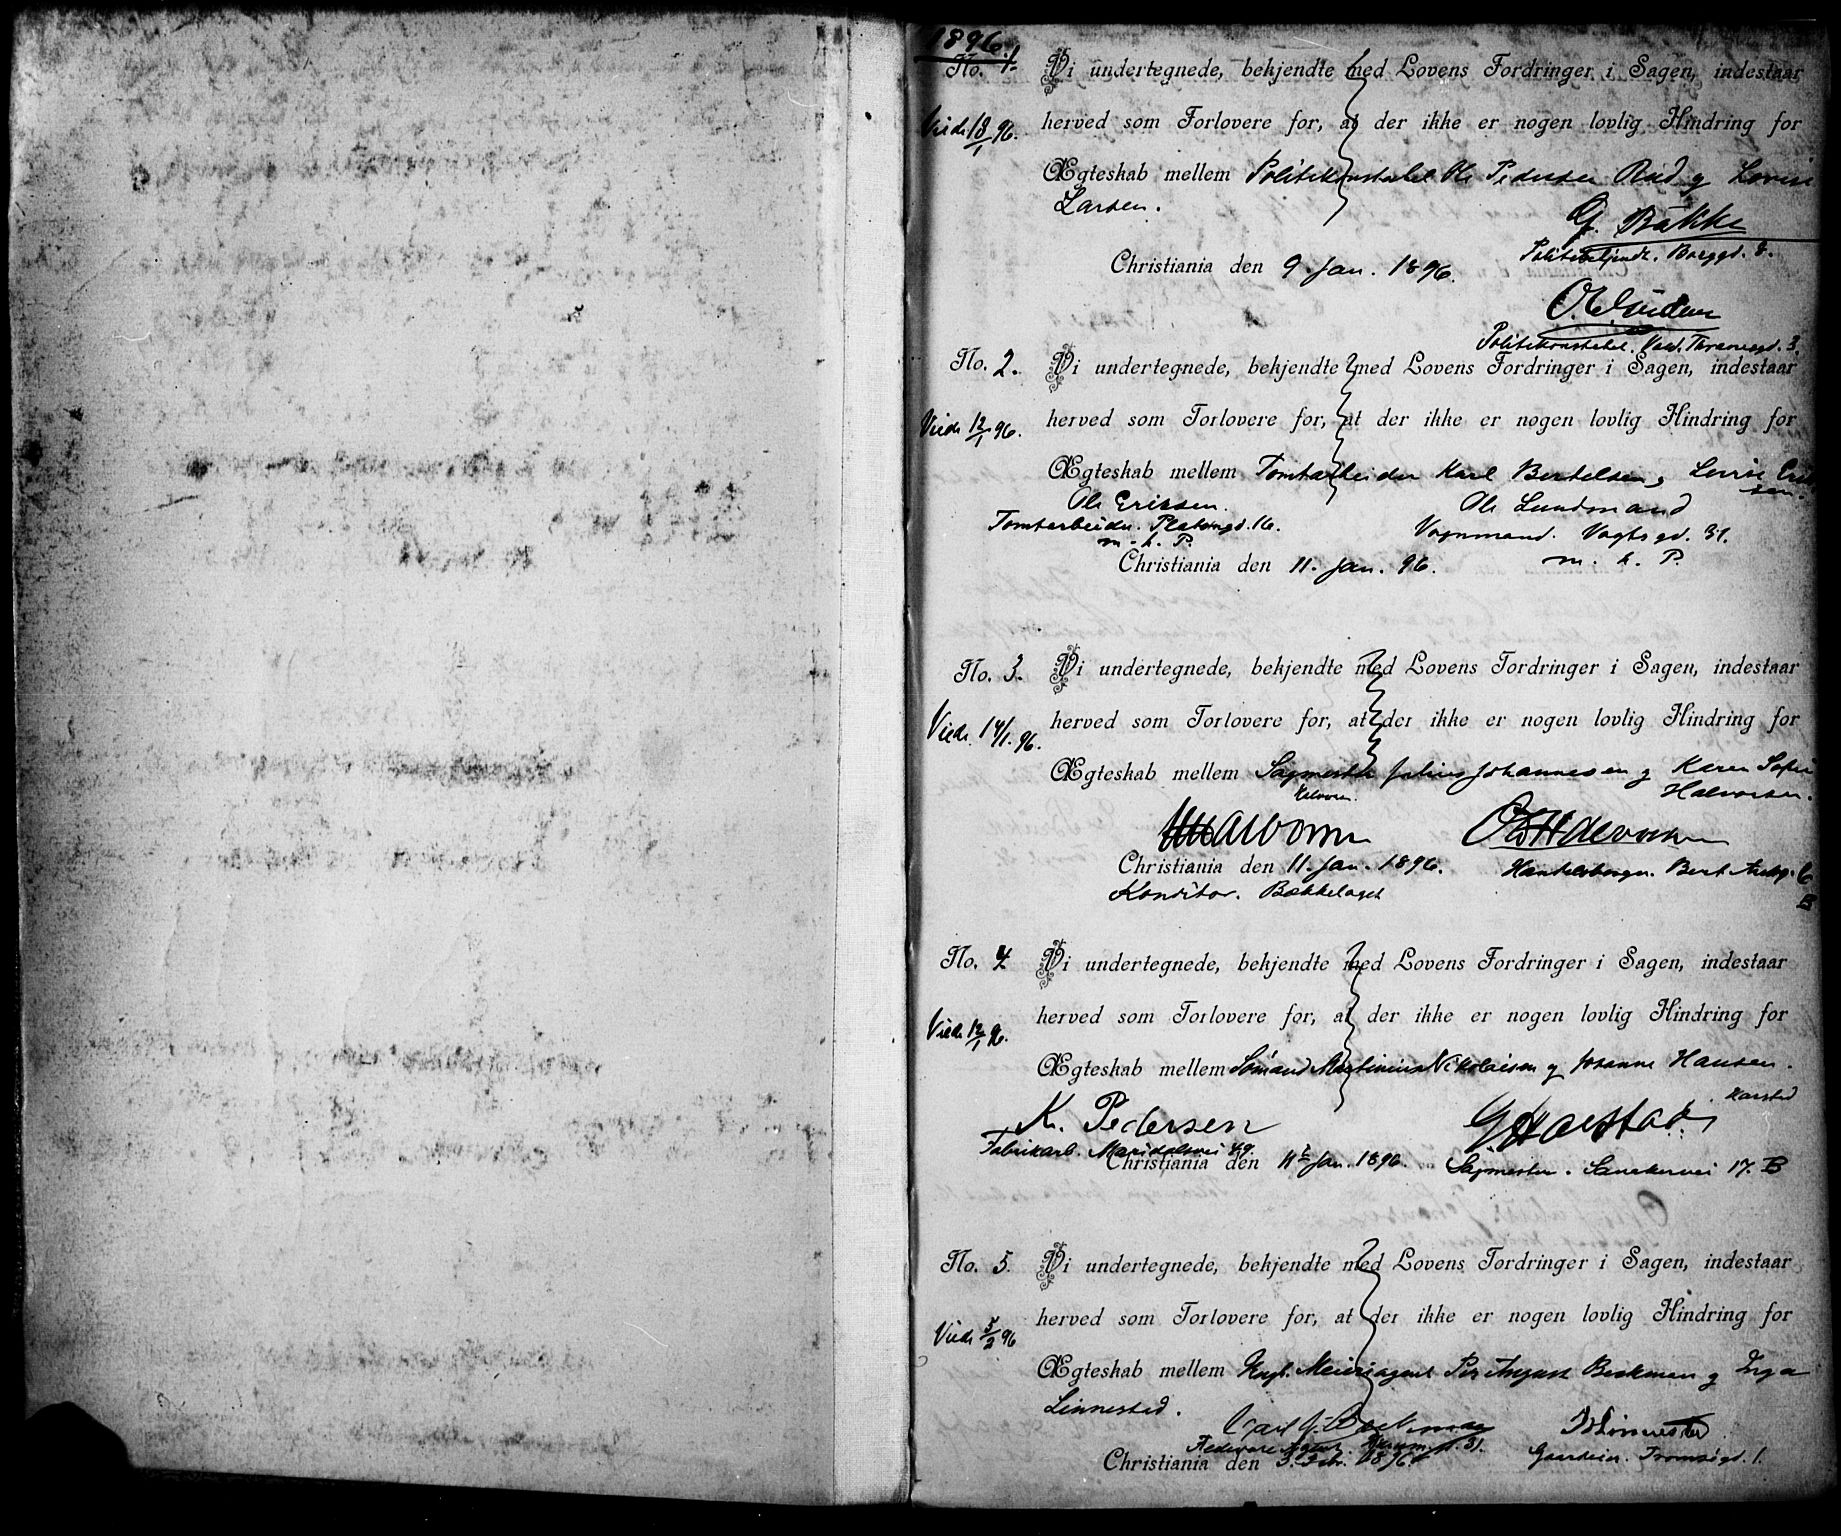 1896.
No. 1. Vi undertegnede, bekjendte med Lovens Fordringer i Sagen, indestaar
Viede 18/1 96. herved som Forlovere for, at der ikke er nogen lovlig Hindring for
Ægteskab mellem Politikonstabel Ole Pedersen Rud og Lovise
Larsen.
G. Bakke
Politibetjendt. Borggd. 8.
Christiania den 9. Jan. 1896.
Politikonstabel. Vald. Thranesgd. 3.
No. 2. Vi undertegnede, bekjendte med Lovens Fordringer i Sagen, indestaar
Viede 12/1 96. herved som Forlovere for, at der ikke er nogen lovlig Hindring for
Ægteskab mellem Tomtarbeider Karl Bertelsen og Lovise Erik
sen.
Ole Erikssen. Ole Lundmand
Tomtarbeider. Platousgd. 16. Vognmand. Vogtsgd. 31.
m. h. P. m. h. P.
Christiania den 11. Jan. 96.
No. 3. Vi undertegnede, bekjendte med Lovens Fordringer i Sagen, indestaar
Viede 14/1. 96. herved som Forlovere for, at der ikke er nogen lovlig Hindring for
Ægteskab mellem Sagmester Julius Johannesen og Karen Sofie
Halvorsen.
Christiania den 11. Jan. 1896. Handelsborger.
Konditor. Bækkelaget B
No. 4. Vi undertegnede, bekjendte med Lovens Fordringer i Sagen, indestaar
Viede 12/1 96. herved som Forlovere for, at der ikke er nogen lovlig Hindring for
Ægteskab mellem Sømand Martinius Nikolaisen og Johanne Hansen.
Harstad
K. Pedersen G Harstad
Fabrikarb. Maridalsvei 49.
Christiania den 11 Jan. 1896. Sagmester. Sannervei 17. B
No. 5. Vi undertegnede, bekjendte med Lovens Fordringer i Sagen, indestaar
Viede 5/2 96 herved som Forlovere for, at der ikke er nogen lovlig Hindring for
Ægteskab mellem Ungk. Meieriagent Per August Beckman og Inga
Linnestad.
Carl J. Beckman Linnestad
Fedevare Agent. 31. Gaardeier. Tromsøgd. 1.
Christiania den 3. Febr. 1896.